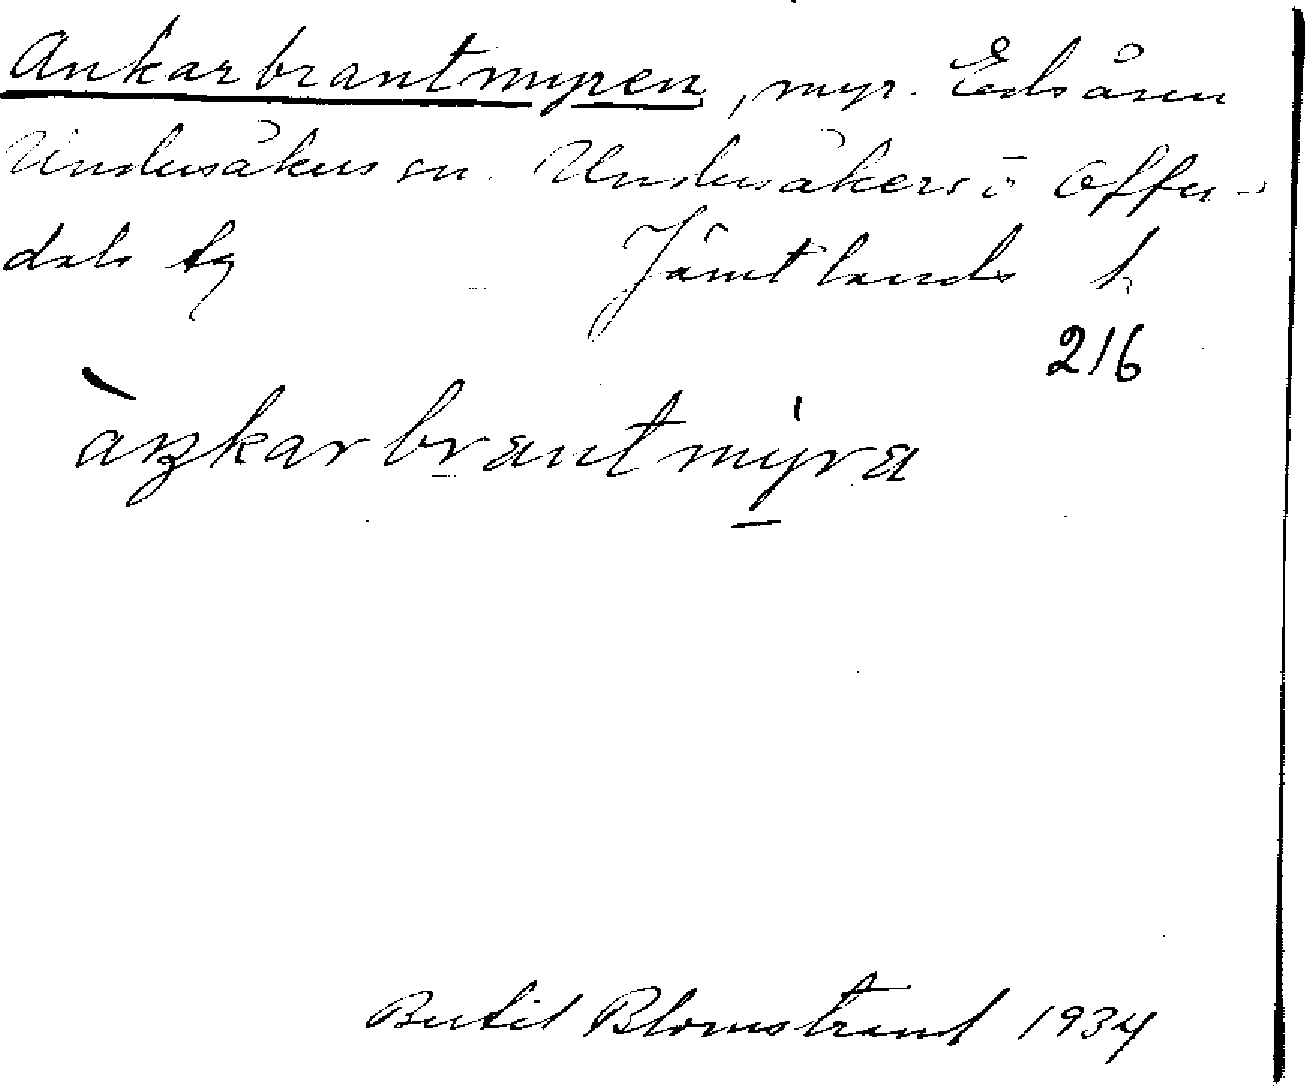 Ankarbrantmyren, myr. Edsåsen
Undersåkers sn. Undersåkers o Offer-
dals tg Jämtlands l.
216
àŋkarbrantmýra
Bertil Blomstrand 1934